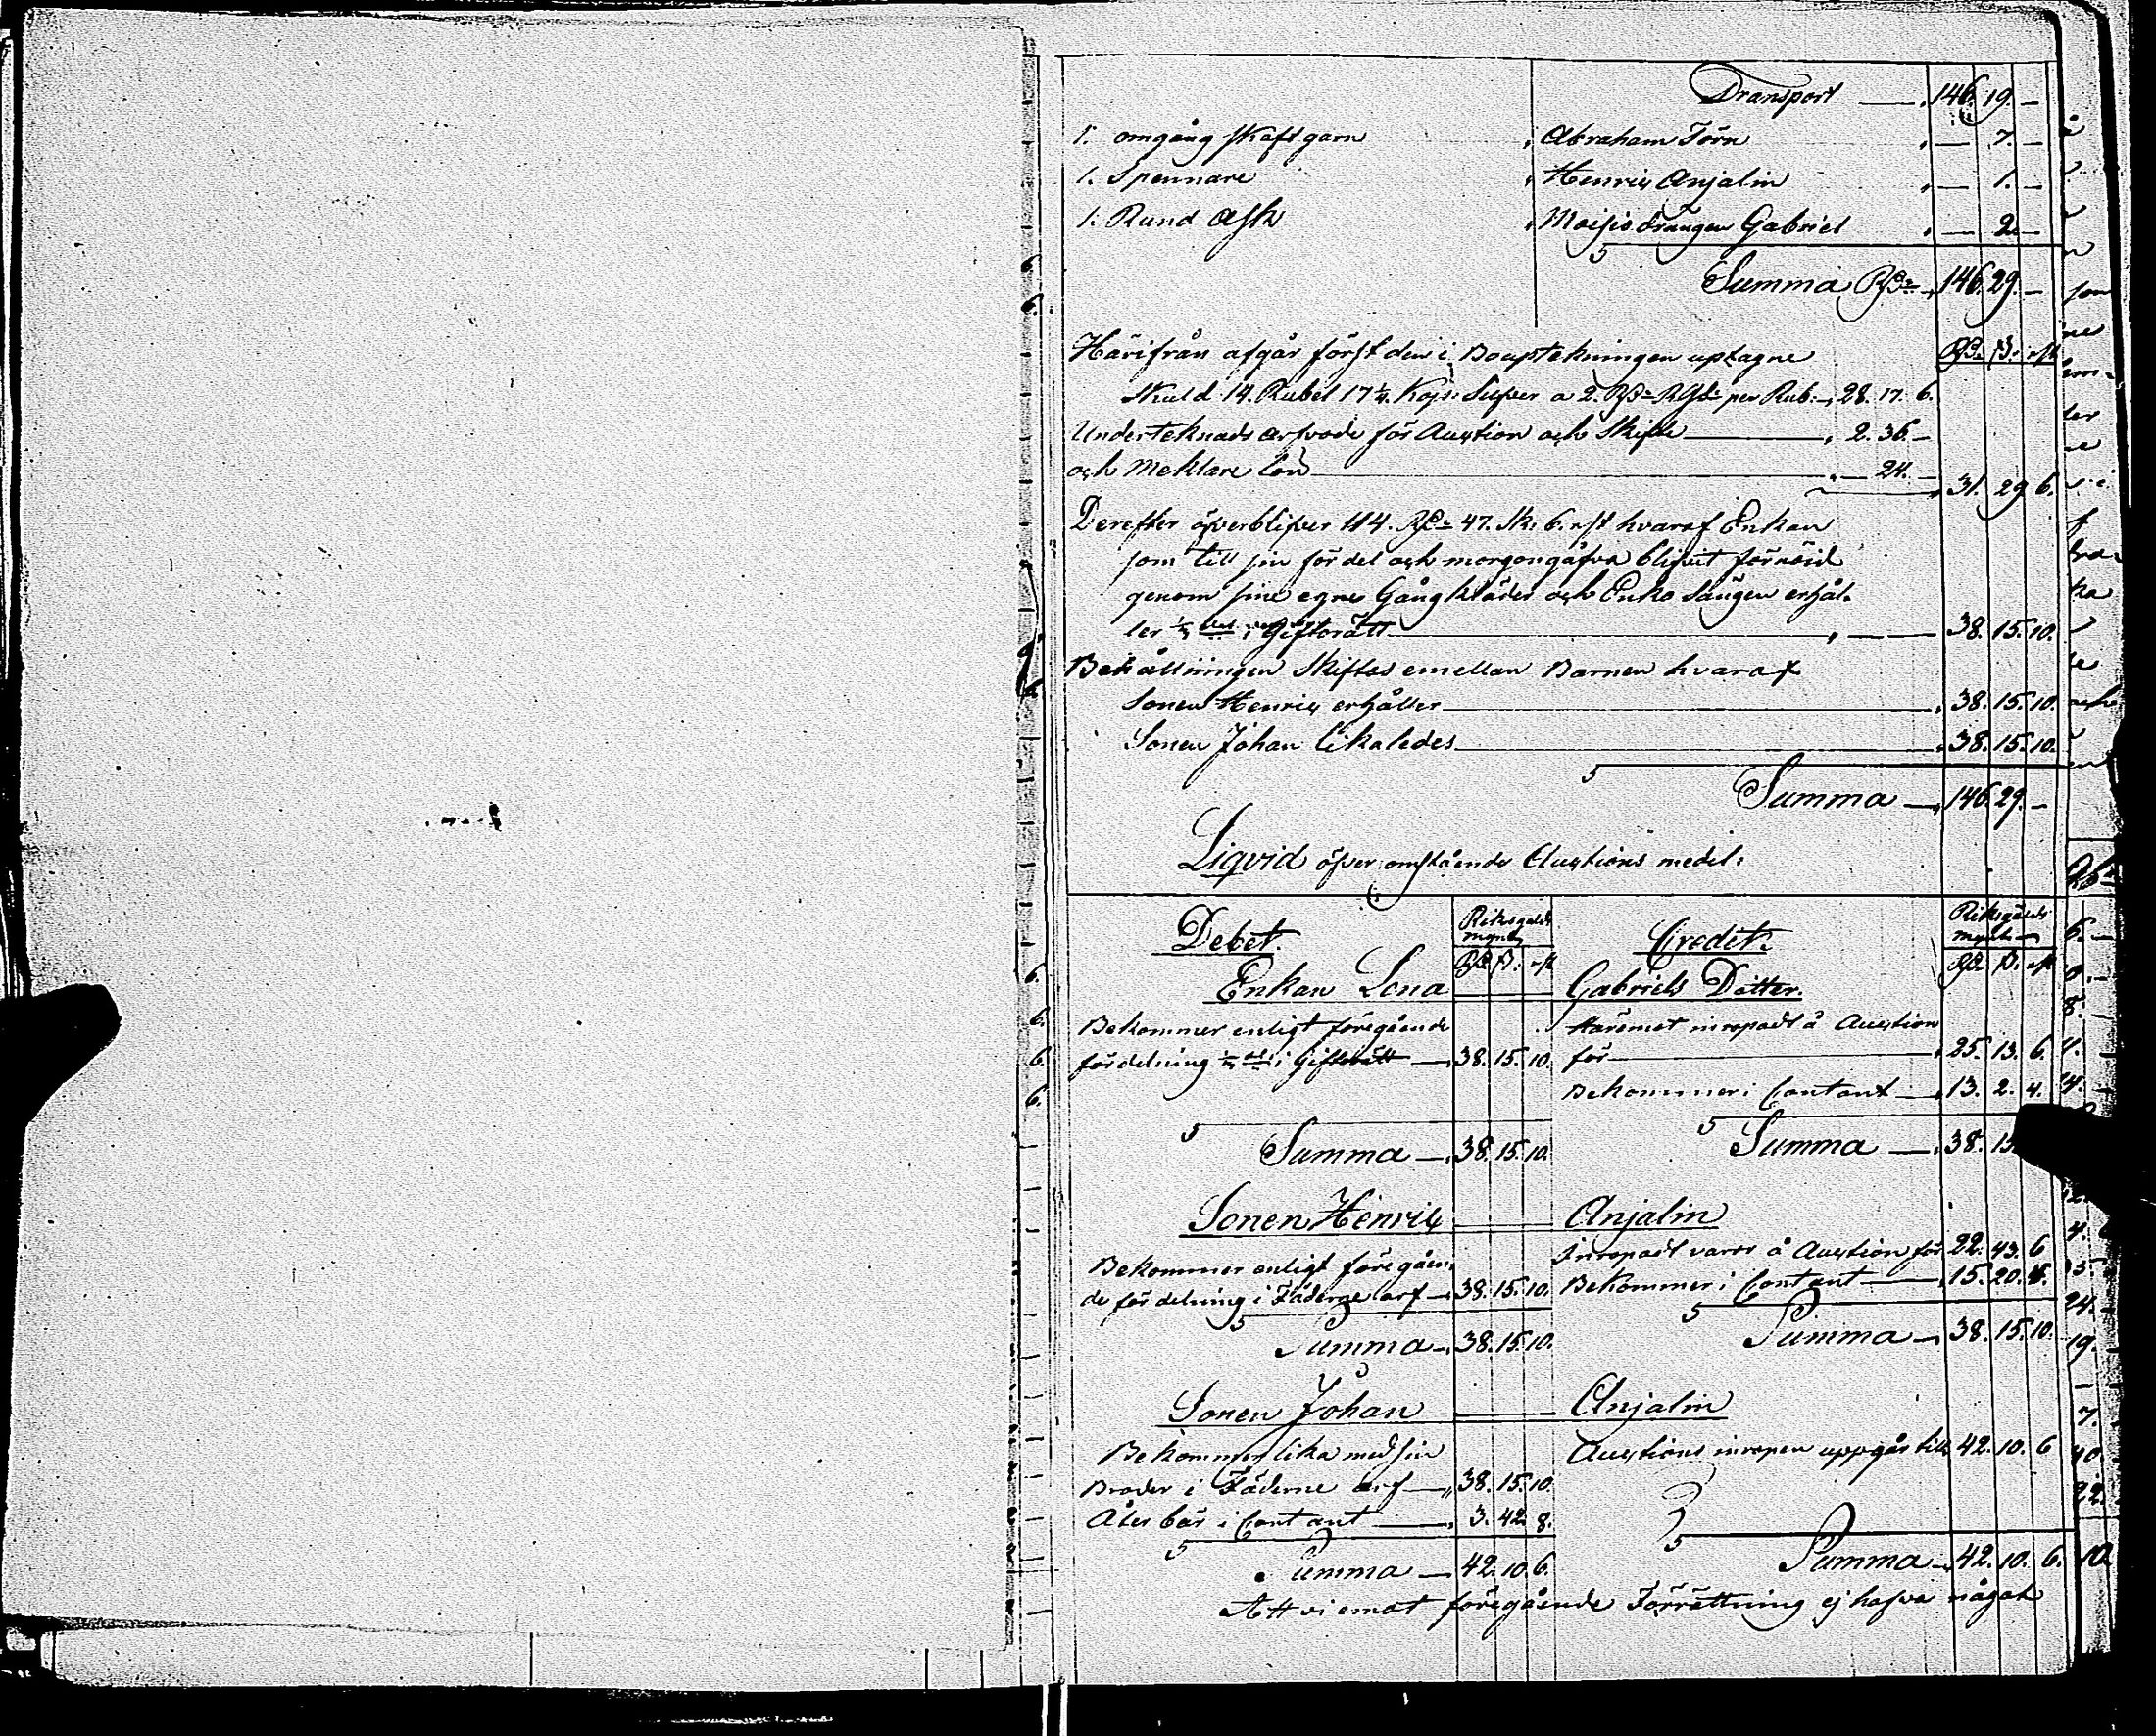 Transport — 146. 19. —
1. omgång skaftgarn Abraham Törn — 7. —
1. Spennare Henric Anjalin — 1. —
1. Rund Ask Moisio drängen Gabriel — 2. —
Summa RD: 146. 29. —
Härifrån afgår först den i Bouptekningen uptagne RD. ß. rst
Skuld 14. Rubel 17 1/4. Kop: Silfver a 2. RD: RGds per Rub. — 28. 17. 6.
Underteknads arfvode för Auction och Skifte — 2. 36. —
och Meklare lön — 24. — 31. 29. 6.
Derefter öfverblifver 114. RD: 47. sk. 6. rst hvaraf Enkan
som till sin fördel och morgongåfva blifvit förnöjd
genom sine egne Gångkläder och Enko Sängen erhål-
ler 1/3 del i Giftorätt — 38. 15. 10.
Behållningen Skiftas emellan Barnen hvaraf
Sonen Henric erhåller — 38. 15. 10.
Sonen Johan likaledes — 38. 15. 10.
Summa — 146. 29. —
Liqvid öfver omstående Auctions medel:
Debet. Riksgälds mynt Credit. Riksgälds mynt
RD ß. rst RD. ß. rst
Enkan Lena — Gabriels Dotter.
Bekommer enligt föregående Häremot inropadt å Auction
fördelning 1/3 del i Giftorätt — 38. 15. 10. för — 25. 13. 6.
Bekommer i Contant — 13. 2. 4.
Summa — 38. 15. 10. Summa — 38. 15
Sonen Henric — Anjalin
Bekommer enligt föregåen- Inropadt varor å Auction för 22. 43. 6
de fördelning i Fäderne arf — 38. 15. 10. Bekommer i Contant — 15. 20. 4.
Summa — 38. 15. 10. Summa — 38. 15. 10.
Sonen Johan — Anjalin
Bekommer lika med sin Auctions inropen uppgår till 42. 10. 6
Broder i Fäderne arf — 38. 15. 10.
Åter bär i Contant — 3. 42. 8.
Summa — 42. 10. 6. Summa — 42. 10. 6.
Att vi emot föregående Förrättning ej hafva något